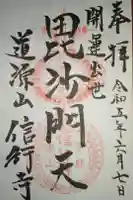 奉拝
令和五年六月七日
開運出世
毘沙門天
道源山信行寺